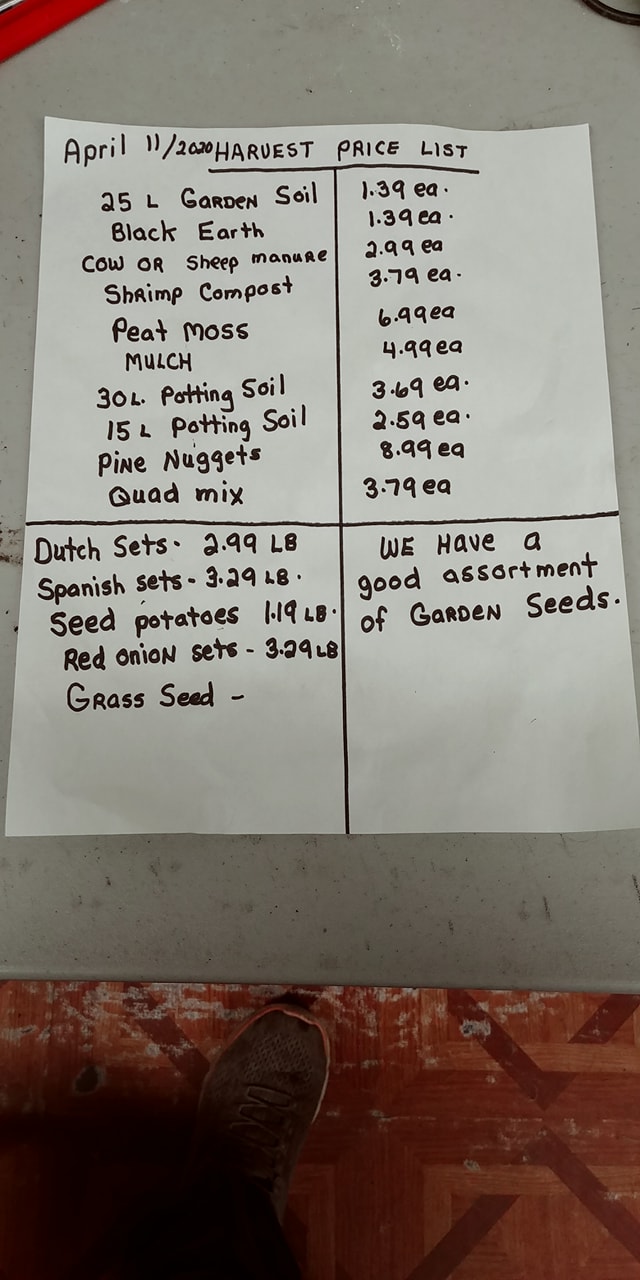 April 11/2020 HARVEST PRICE LIST
25 L GARDEN Soil 1.39 ea.
Black Earth 1.39 ea.
COW OR Sheep manure 2.99 ea
Shrimp Compost 3.79 ea.
Peat Moss 6.99 ea
MULCH 4.99 ea
30 L. Potting Soil 3.69 ea.
15 L Potting Soil 2.59 ea.
Pine Nuggets 8.99 ea
Quad mix 3.79 ea
Dutch Sets. 2.99 LB
Spanish sets - 3.29 LB.
Seed potatoes 1.19 LB.
Red onion sets - 3.29 LB
GRASS Seed -
WE Have a
good assortment
of GARDEN Seeds.